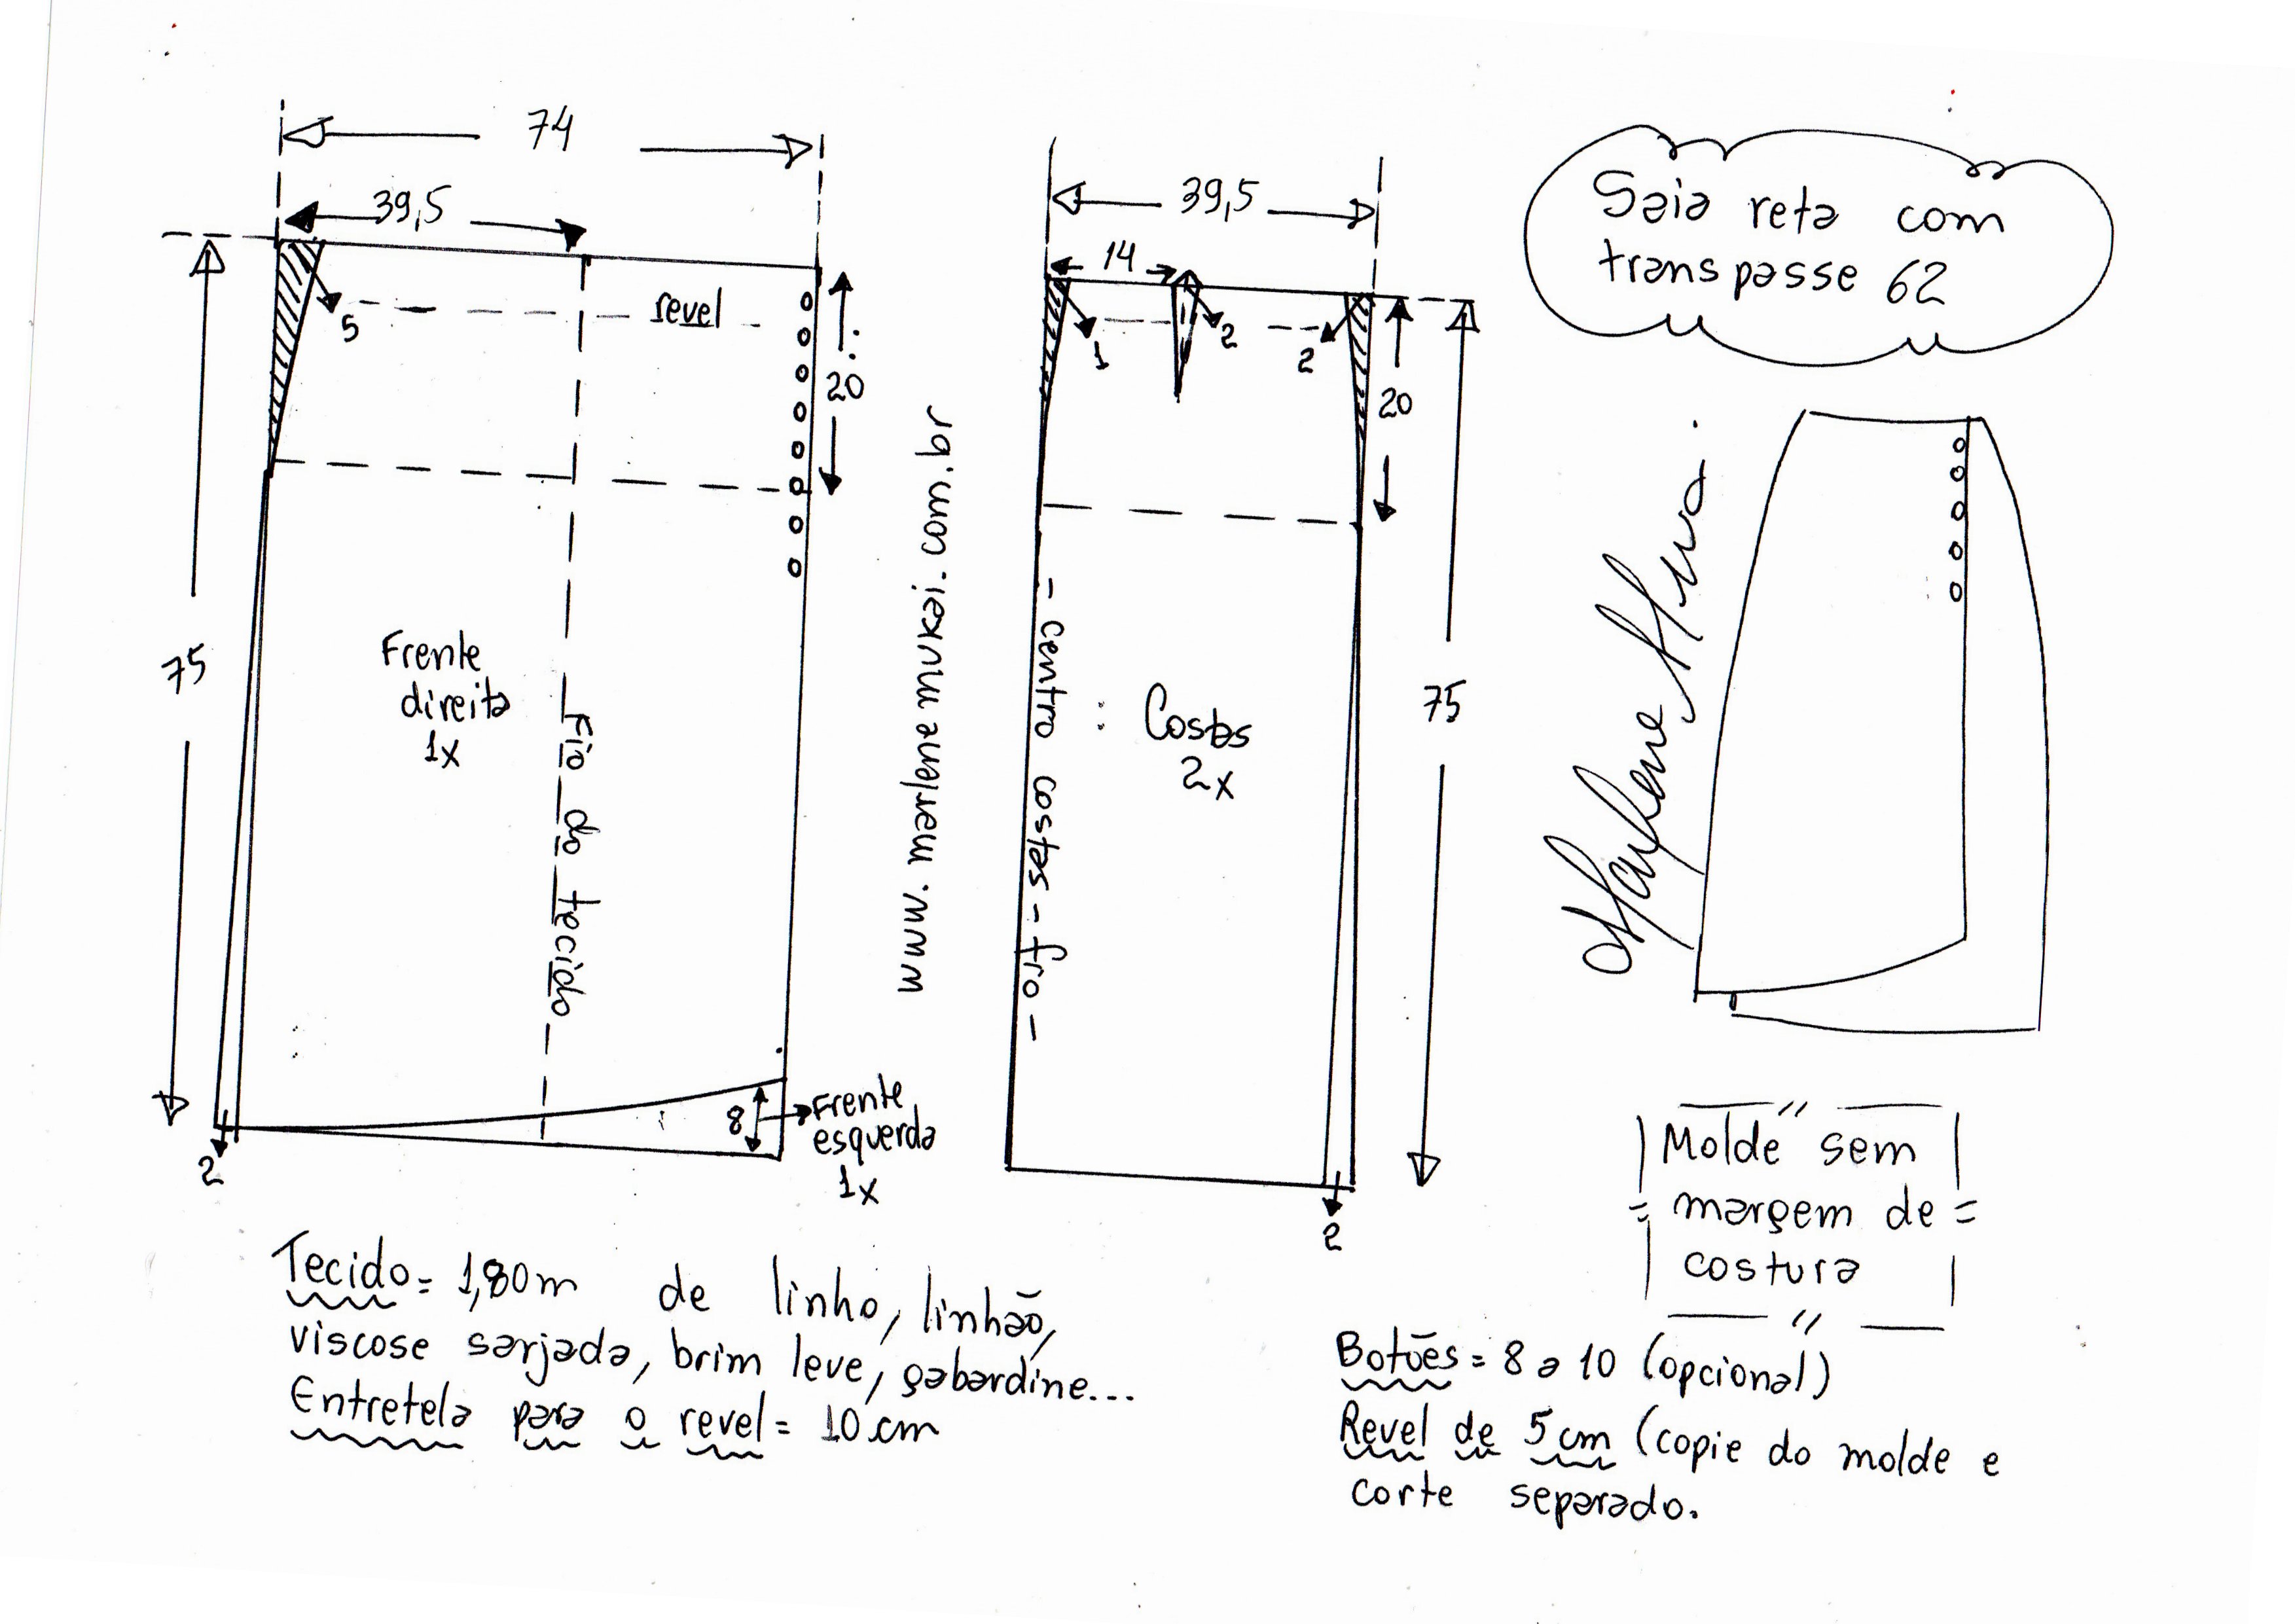 74
39,5
5
revel
20
75
Frente
direita
1x
Fio do tecido
8
Frente
esquerda
1x
2
www.marlenemukai.com.br
39,5
14
1
2
2
20
- centro costas - fio -
Costas
2x
75
2
Saia reta com
transpasse 62
Marlene Mukai
Molde sem
margem de
costura
Tecido = 1,80m de linho, linhão,
viscose sarjada, brim leve, gabardine...
Entretela para o revel = 10 cm
Botões = 8 a 10 (opcional)
Revel de 5 cm (copie do molde e
corte separado.